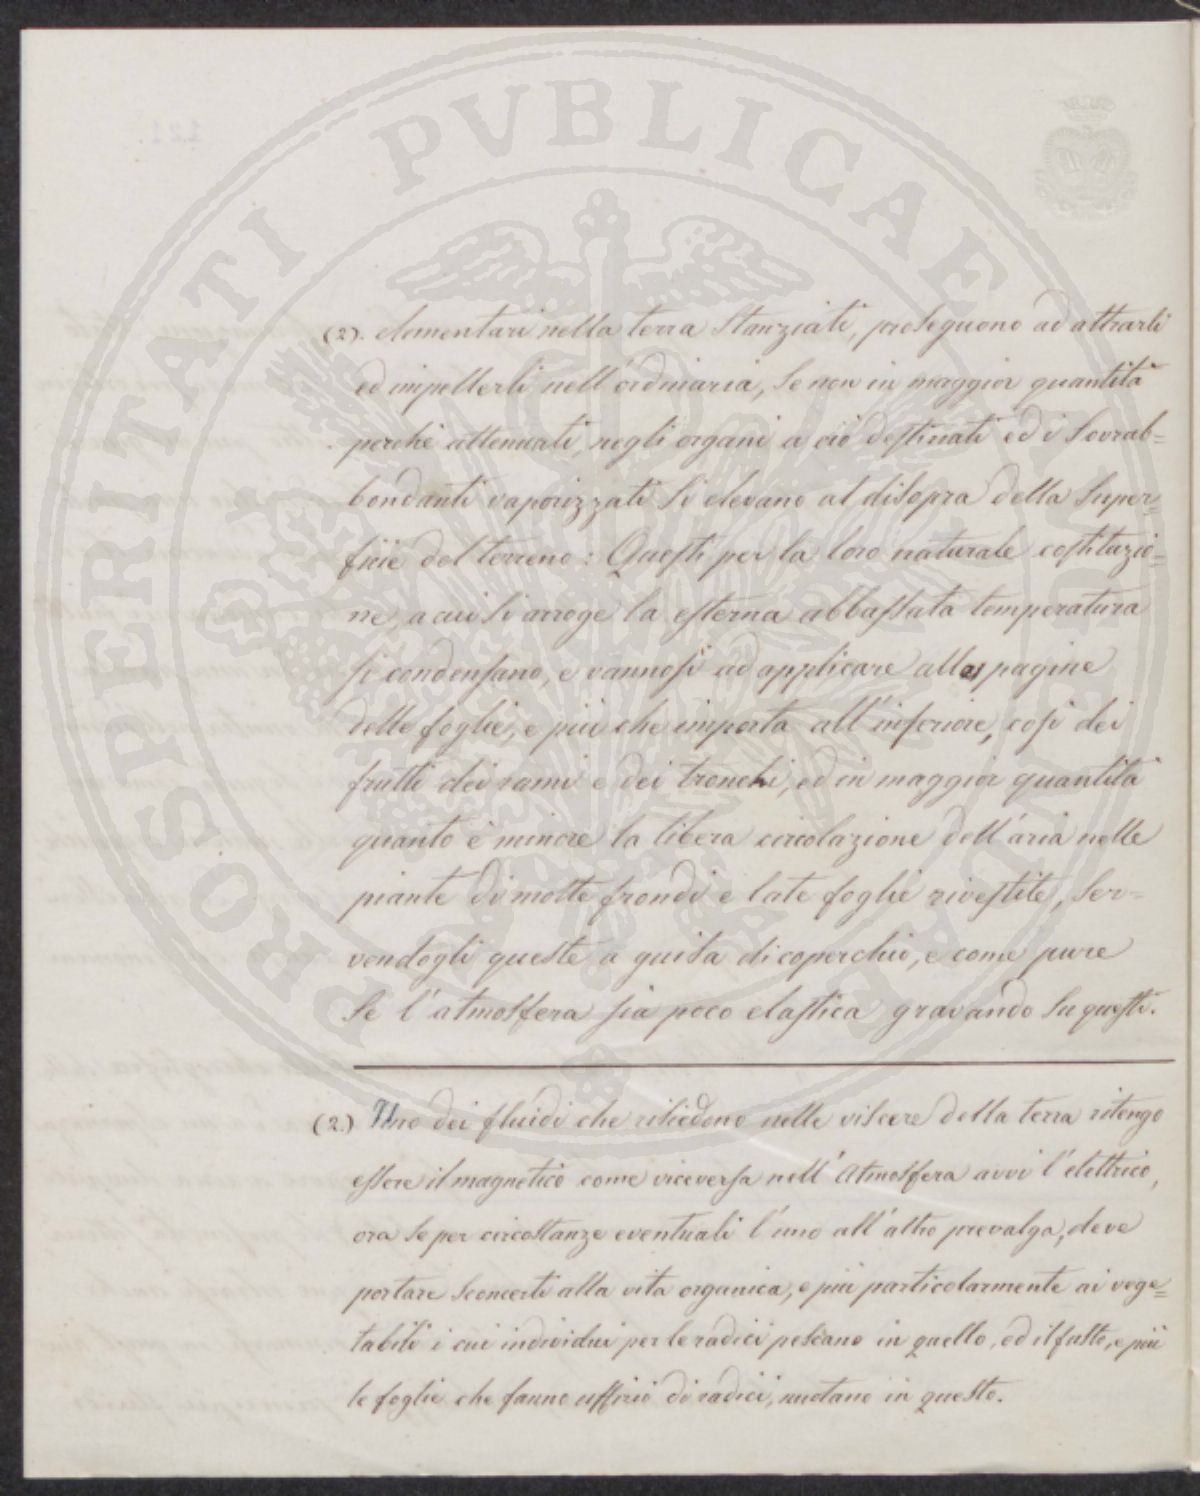 PROSPERITATI PUBLICAE AUGENDAE
(2). elementari nella terra stanziati, proseguono ad attrarli
ed impellerli nell'ordinaria, se non in maggior quantità
perchè attenuati, negli organi a ciò destinati ed i sovrab=
bondanti vaporizzati si elevano al disopra della super=
ficie del terreno: Questi per la loro naturale costituzio=
ne, a cui si arroge la esterna abbassata temperatura
si condensano, e vannosi ad applicare alle pagine
delle foglie, e più che importa all'inferiore, così dei
frutti dei rami e dei tronchi, ed in maggior quantità
quanto è minore la libera circolazione dell'aria nelle
piante di molte frondi e late foglie rivestite, ser=
vendogli queste a guisa di coperchio, e come pure
se l'atmosfera sia poco elastica gravando su questi.
(2.) Uno dei fluidi che risiedono nelle viscere della terra ritengo
essere il magnetico come viceversa nell'Atmosfera avvi l'elettrico,
ora se per circostanze eventuali l'uno all'altro prevalga, deve
portare sconcerti alla vita organica, e più particolarmente ai vege=
tabili i cui individui per le radici pescano in quello, ed il fusto, e più
le foglie che fanno uffizio di radici, nuotano in questo.